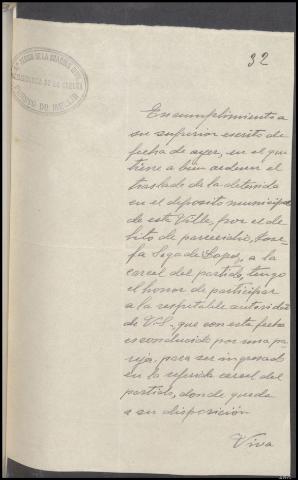 32
8º TERCIO DE LA GUARDIA CIVIL
COMANDANCIA DE LA CORUÑA
PUESTO DE MELLID
En cumplimiento a
su superior escrito de
fecha de ayer, en el que
tiene a bien ordenar el
traslado de la detenida
en el deposito municipal
de esta Villa, por el de-
lito de parricidio, Jose-
fa Sega de Lopez, a la
carcel del partido, tengo
el honor de participar
a la respetable autoridad
de V.S., que con esta fecha
es conducida por una pa-
reja, para ser ingresada
en la referida carcel del
partido, donde queda
a su disposición
Viva